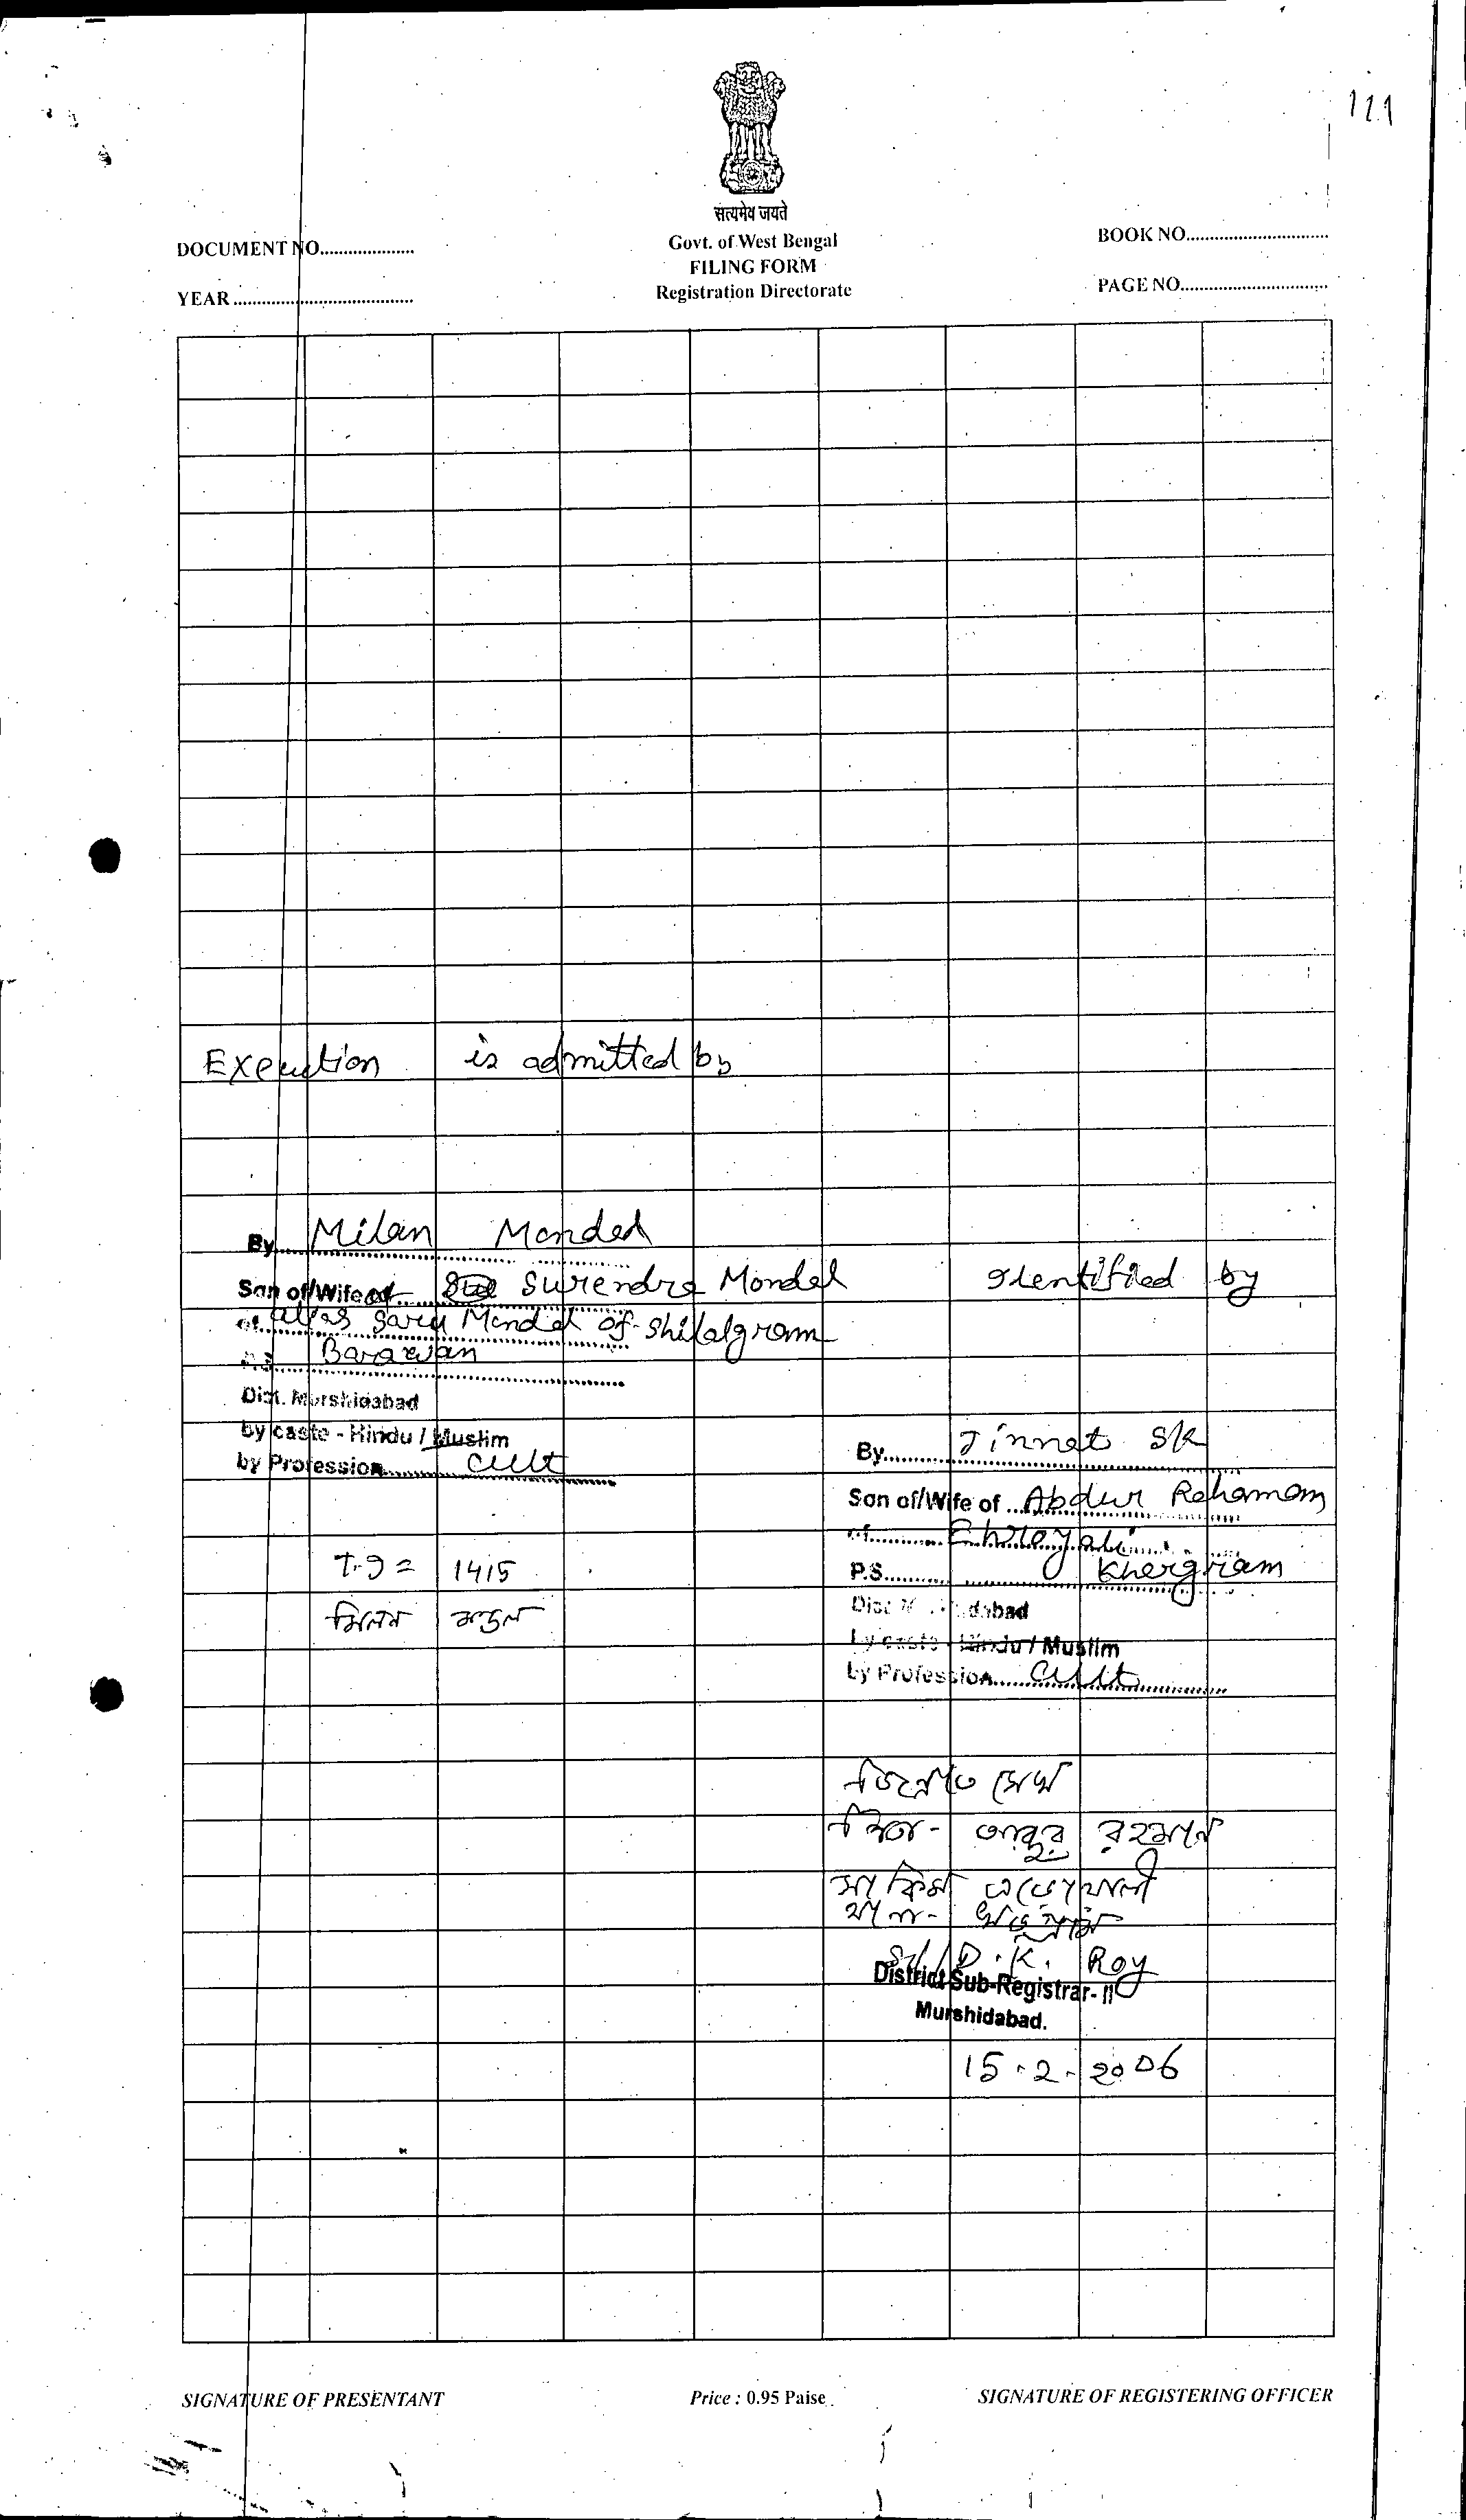 121
सत्यमेव जयते
Govt. of West Bengal
FILING FORM
Registration Directorate
DOCUMENT NO....................
YEAR ......................................
BOOK NO..............................
PAGE NO...............................
Execution is admitted by
By Milan Mondal
Son of/Wife of Surendra Mondal
alias Saru Mondal of Shilalgram
Barawan
Dist. Murshidabad
by caste - Hindu / Muslim
by Profession Cult
T.I = 1415
মিলন মন্ডল
Identified by
By Jinnat SK
Son of/Wife of Abdur Rahaman
of
P.S. Khargram
Dist dabad
by caste - Hindu / Muslim
by Profession Cult
জিন্নাত সেখ
পিতা - আব্দুর রহমান
সাকিম
থানা - খড়গ্রাম
D. K. Roy
District Sub-Registrar- II
Murshidabad.
15 - 2 - 2006
SIGNATURE OF PRESENTANT
Price : 0.95 Paise
SIGNATURE OF REGISTERING OFFICER